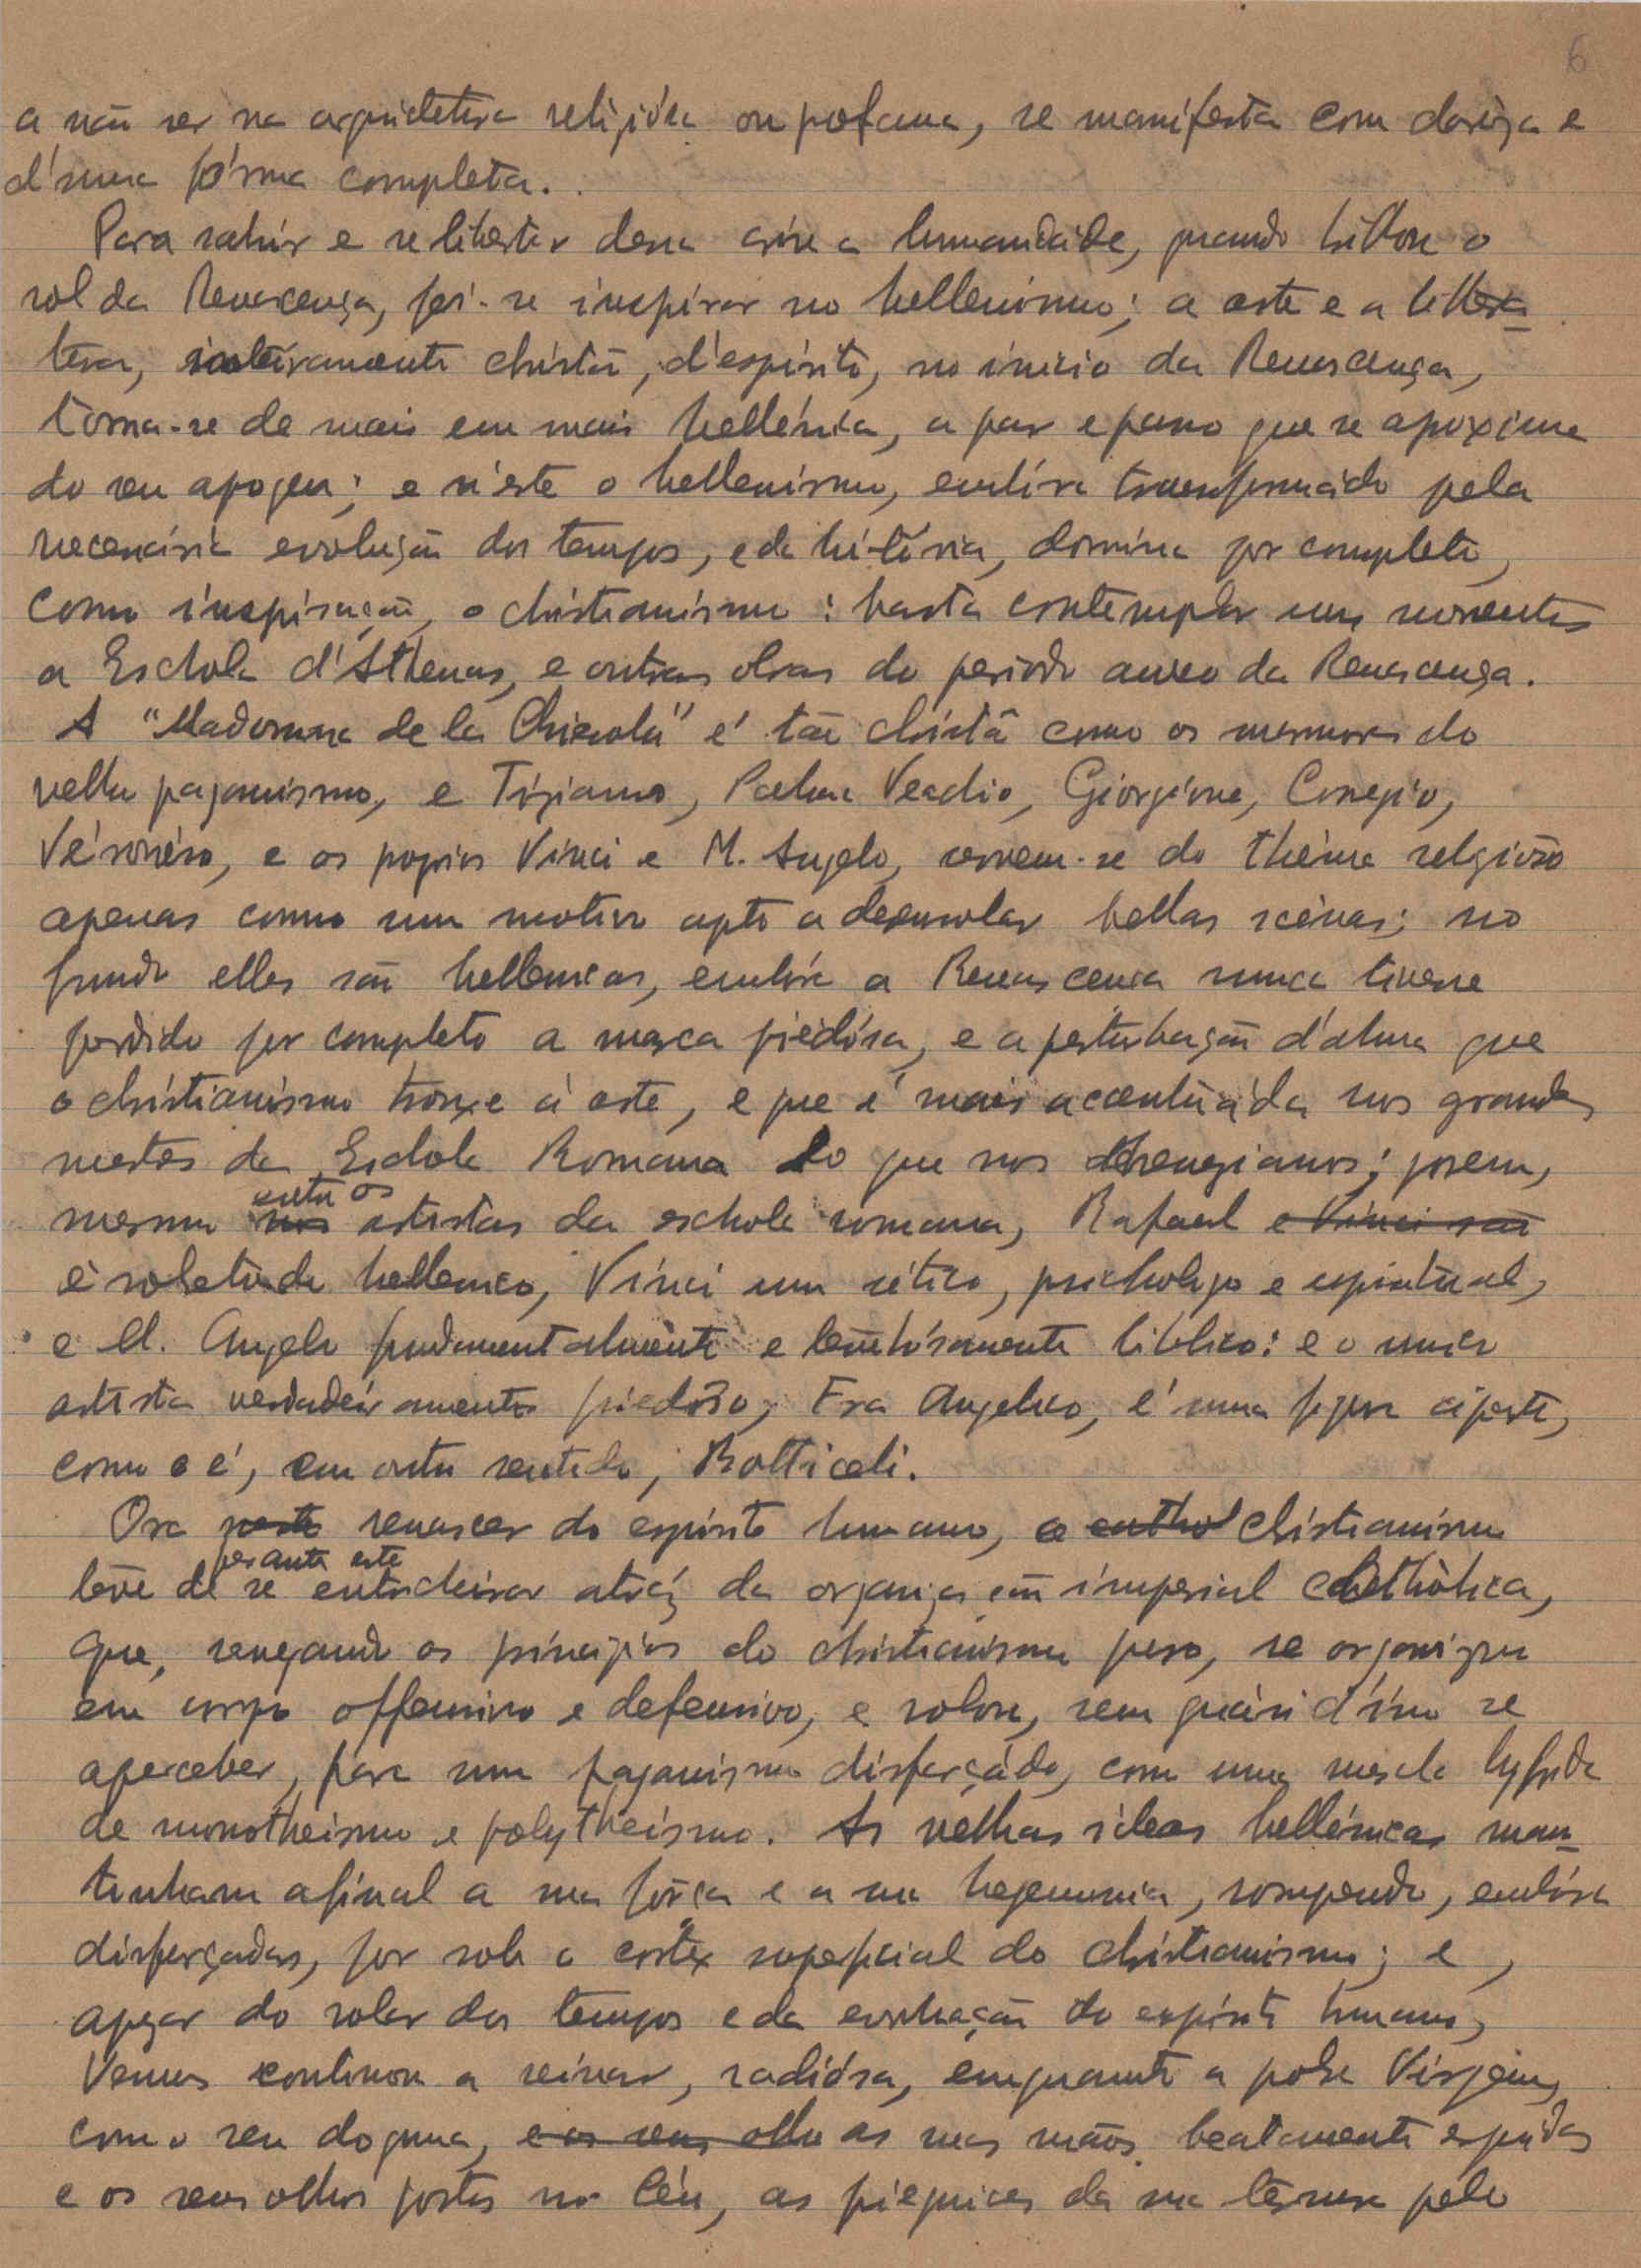 6
a não ser na arquitetura religiósa ou profana, se manifesta com clareza e
d'uma fórma completa.
Para sahir e se libertar dessa crise a humanidade, quando brilhou o
sol da Renascença, foi-se inspirar no hellenismo; a arte e a littera-
tura, inteiramente christã, d'espirito, no inicio da Renascença,
torna-se de mais em mais hellénica, a par e passo que se aproxima
do seu apogeu; e n'este o hellenismo, embóra transformado pela
necessária evolução dos tempos, e da história, domina por completo,
como inspiração, o christianismo: basta contemplar uns momentos
a Eschola d'Athenas, e outras obras do periodo aureo da Renascença.
A "Madonna de la Chicola" é tão christã como os marmores do
velho paganismo, e Tiziano, Palma Vecchio, Giorgione, Corregio,
Véronéso, e os proprios Vinci e M. Angelo, servem-se do théma religioso
apenas como um motivo apto a desenrolar bellas scénas; no
fundo elles são hellenicos, embóra a Renascença nunca tivesse
perdido por completo a marca piedósa, e a perturbação d'alma que
o christianismo trouxe á arte, e que é mais accentuáda nos grandes
mestres da Eschola Romana do que nos venezianos; porem,
mesmo entre os artistas da eschola romana, Rafael e Vinci são
é sobretudo hellenico, Vinci um sético, psichologo e espiritual,
e M. Angelo fundamentalmente e tenebrósamente biblico: e o unico
artista verdadeiramente piedoso, Fra Angelico, é uma figura áparte,
como o é, em outro sentido, Botticeli.
Ora neste renascer do espirito humano, o cathol christianismo
perante este
teve de se entrincheirar atráz da organização imperial cathólica,
que, renegando os principios do christianismo puro, se organizou
em corpo offensivo e defensivo, e rolou, sem quási d'isso se
aperceber, para um paganismo disfarçádo, com uma mescla hybrida
de monotheismo e polytheismo. As velhas ideas hellénicas man-
tinham afinal a sua força e a sua hegemonia, rompendo, embóra
disfarçadas, por sob o cortex superficial do christianismo; e,
apezar do rolar dos tempos e da evolução do espirito humano,
Venus continou a reinar, radiósa, emquanto a pobre Virgem,
com o seu dogma, e os seus olho as suas mãos beatamente erguidas
e os seus olhos postos no Céu, as pieguices da sua ternura pelo